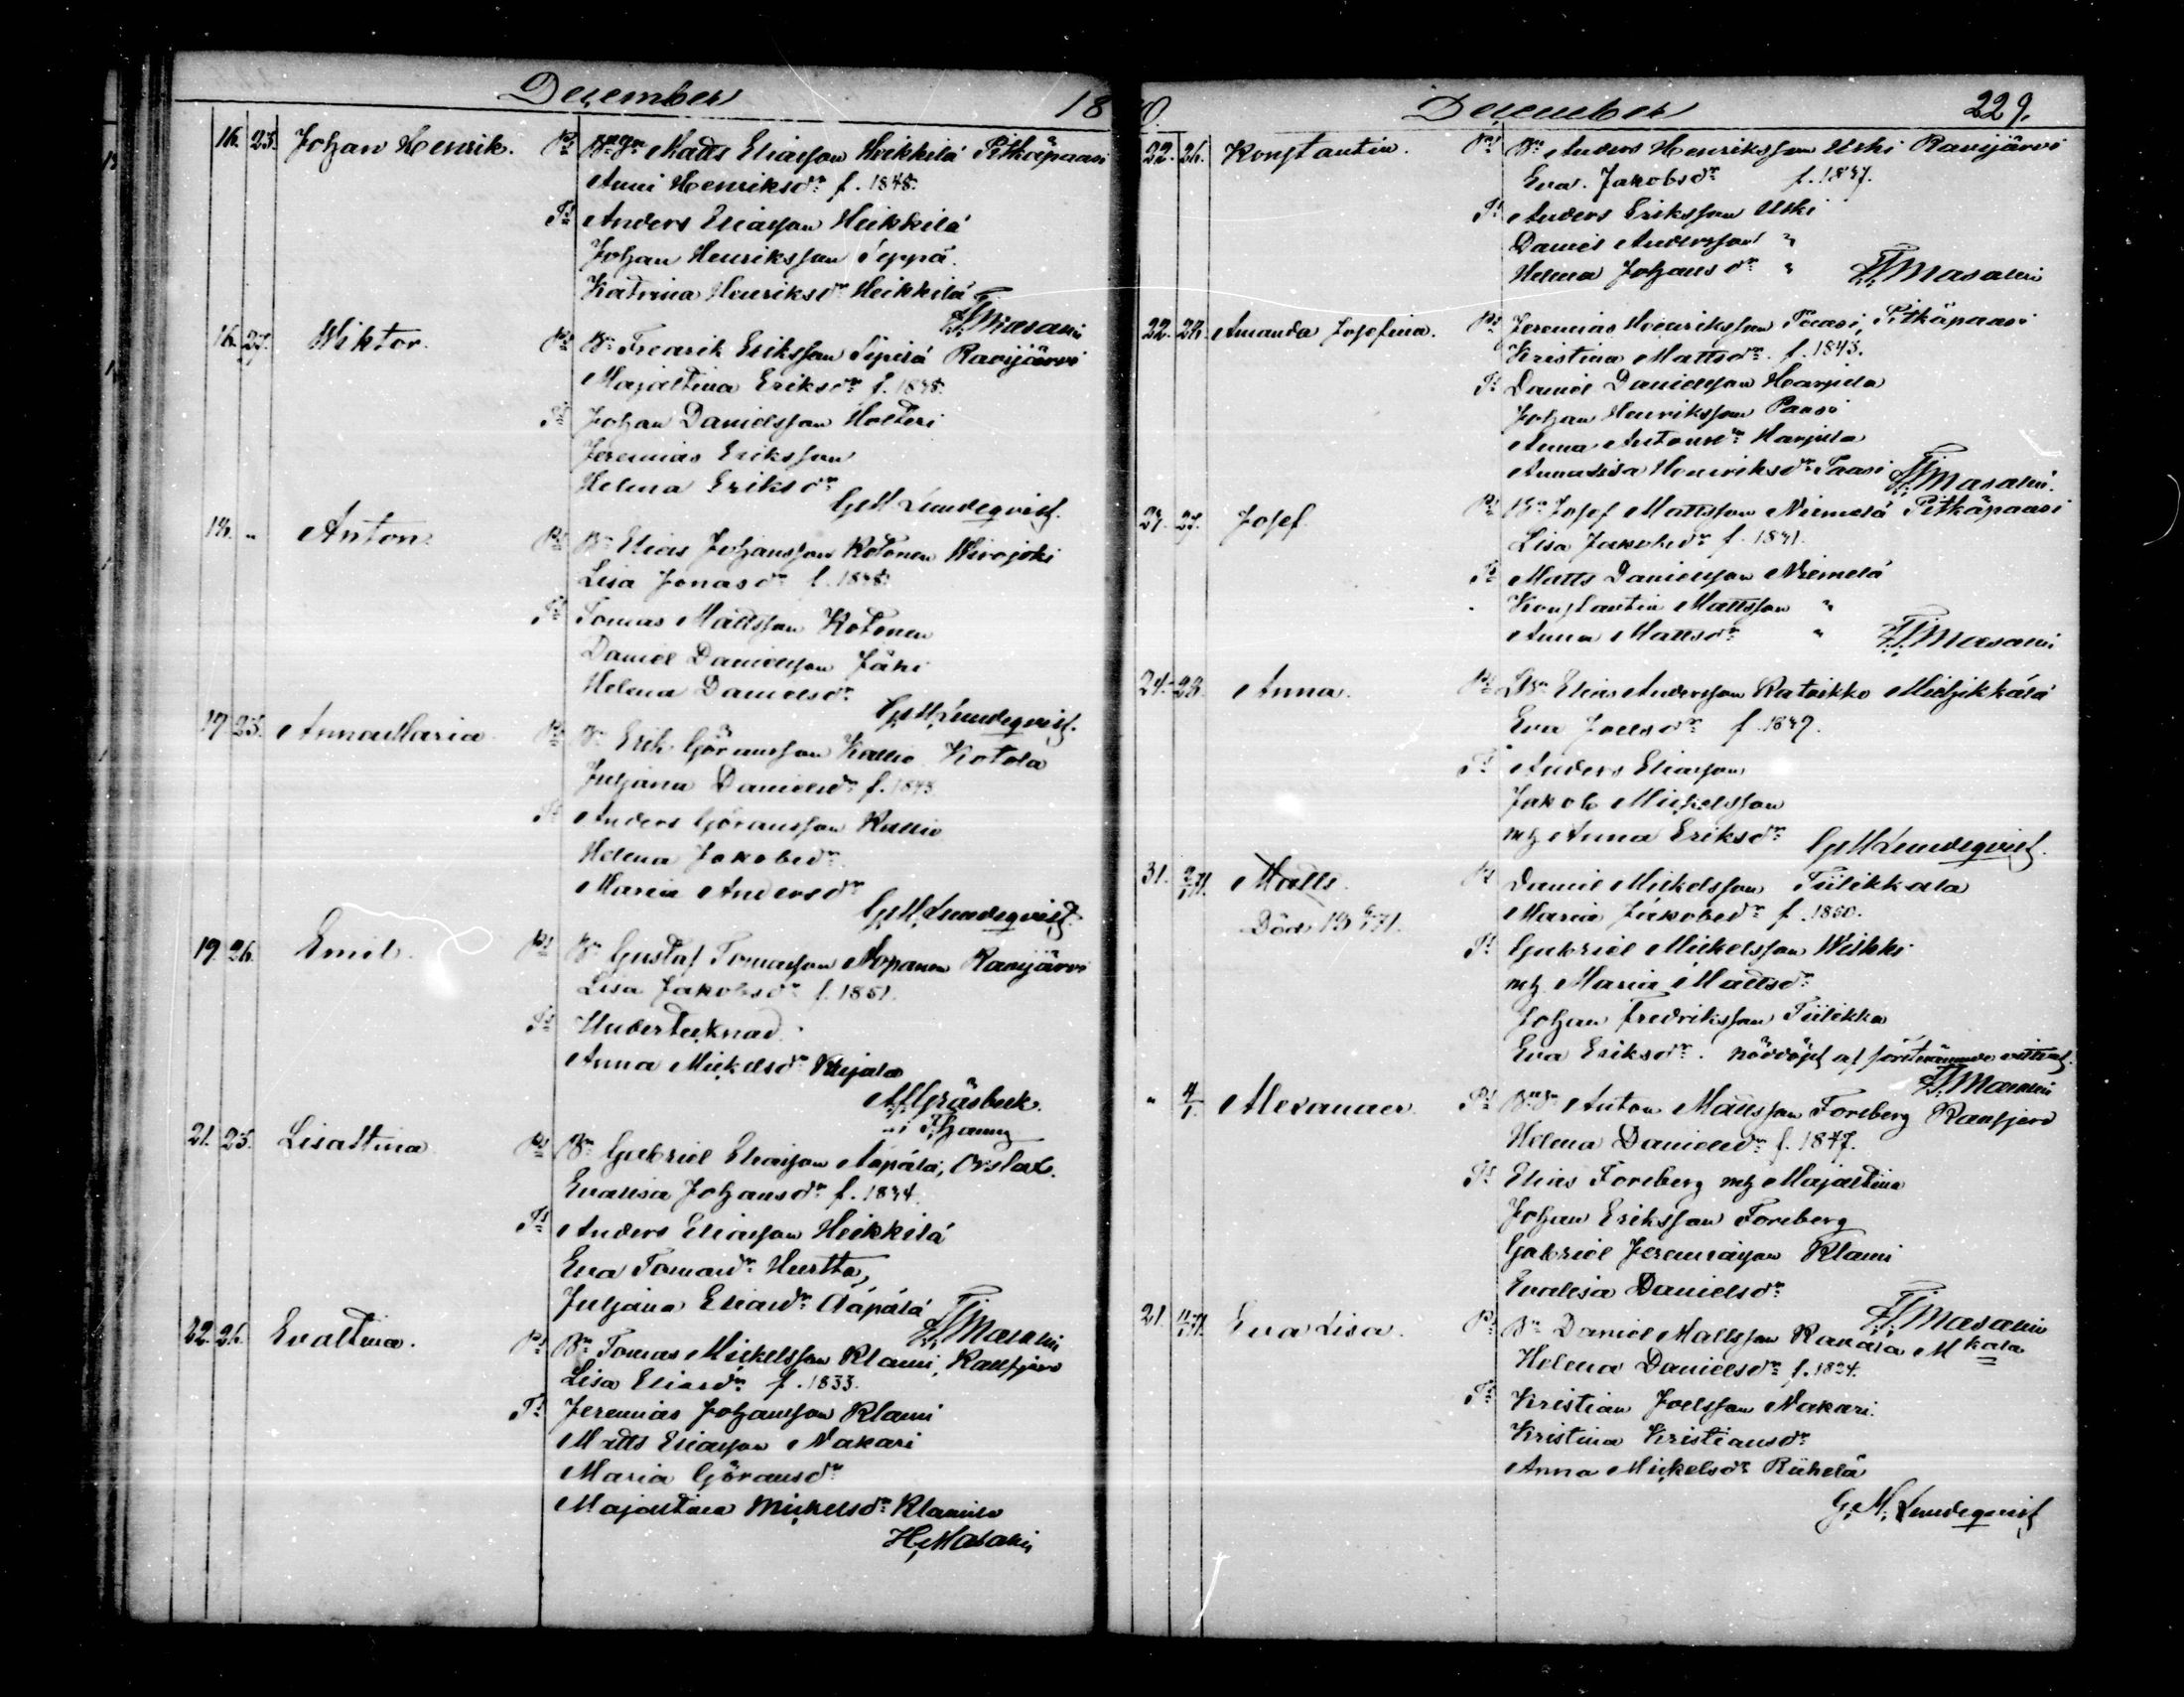 December 18
16. 25. Johan Henrik. Ps Bns Sn Matts Eliasson Heikkilä Pitkäpaasi
Anni Henriksdr f. 1848.
Ts Anders Eliasson Heikkilä
Johan Henriksson Seppä.
Katrina Henriksdr Heikkilä
HjMasalin
16. 27. Wiktor. Ps Bn Fredrik Eriksson Sipilä Ravijärvi
Majastina Eriksdr f. 1848.
Ts Johan Danielsson Holteri
Jeremias Eriksson
Helena Eriksdr
GMLundeqvist.
18. " Anton. Ps Bn Elias Johansson Kotonen Wirojoki
Lisa Jonasdr f. 1848.
Ts Tomas Mattsson Kotonen
Daniel Danielsson Jäki
Helena Danielsdr
GMLundeqvist.
17 25. Anna Maria Ps Bn Erik Göransson Kallio Kotola
Juljana Danielsdr f. 1843.
Ts Anders Göransson Kallio
Helena Jakobsdr
Maria Andersdr
GMLundeqvist.
19. 26. Emil. Ps Bn Gustaf Tomasson Nopanen Ravijärvi
Lisa Jakobsdr f. 1851.
Ts Undertecknad
Anna Mickelsdr
AfGräsbeck.
21. 25. Lisastina Ps Bn Gabriel Eliasson Aapälä, Orslax.
Evalisa Johansdr f. 1834.
Ts Anders Eliasson Heikkilä
Eva Tomasdr Hurtta,
Juljana Eliasdr Aapälä
HjMasalin
22. 26. Evastina. Ps Bn Tomas Mickelsson Klami, Ransfjero
Lisa Eliasdr f. 1833.
Ts Jeremias Johansson Klami
Matts Eliasson Nakari
Maria Göransdr
Majastina Mickelsdr Klami
HjMasalin
70. December 229.
22. 26. Konstantin. Ps Bn Anders Henriksson Uski Ravijärvi
Eva Jakobsdr f. 1837.
Ts Anders Eriksson Uski
Daniel Andersson "
Helena Johansdr "
HjMasalin
22. 28. Amanda Josefina. Ps Jeremias Henriksson Paasi, Pitkäpaasi
Kristina Mattsdr f. 1843.
Ts Daniel Danielsson Harjula
Johan Henriksson Paasi
Anna Antonsdr Harjula
Annalisa Henriksdr Paasi
HjMasalin.
27. Josef. Ps Bn Josef Mattsson Niemelä Pitkäpaasi
Lisa Jakobsdr f. 1841.
Ts Matts Danielsson Niemelä
Konstantin Mattsson "
Anna Mattsdr "
HjMasalin
24. 28. Anna. Ps Elias Andersson Ratoikko Miehikkälä
Eva Joelsdr f. 1849.
Ts Anders Eliasson
Jakob Mickelsson
mh Anna Eriksdr
GMLundeqvist.
31. 2/1 71. Matts. Ps Daniel Mickelsson Tiilikkala
Död 15 71. Maria Jakobsdr f. 1850.
Ts Gabriel Mickelsson Wilkki
mh Maria Mattsdr
Johan Fredriksson Tiilikka
Eva Eriksdr. nöddöpt af förstnämnde
HjMasalin
" 4/1. Alexander. Ps Anton Mattsson Forsberg Ransfjero
Helena Danielsdr f. 1847.
Ts Elias Forsberg mh Majastina
Johan Eriksson Forsberg
Gabriel Jeremiasson Klami
Evalisa Danielsdr
HjMasalin
21. Eva Lisa. Ps Bn Daniel Mattsson Rakala Mkälä
Helena Danielsdr f. 1824.
Ts Kristian Joelsson Nakari.
Kristina Kristiansdr
Anna Mickelsdr Riihelä
G.M. Lundeqvist